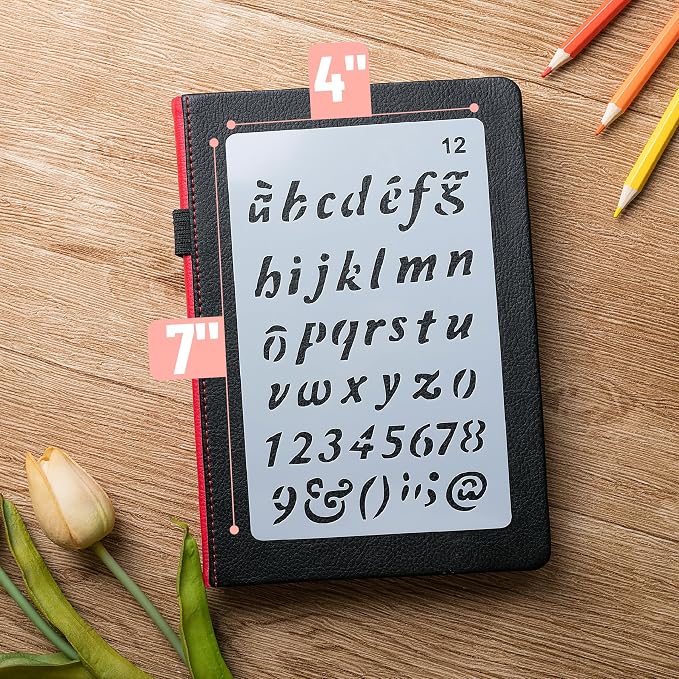 4"
12
àbcdêfg̃
hijklmn
7"
ôpqrstu
vwxyz0
12345678
9&()¡!;@